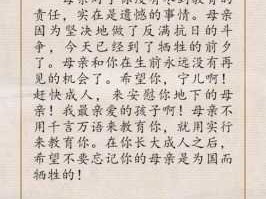 母亲对于你没有尽到教育的
责任，实在是遗憾的事情。母亲
因为坚决地做了反满抗日的斗
争，今天已经到了牺牲的前夕
了。母亲和你在生前永远没有再
见的机会了。希望你，宁儿啊！
赶快成人，来安慰你地下的母
亲！我最亲爱的孩子啊！母亲不
用千言万语来教育你，就用实行
来教育你。在你长大成人之后，
希望不要忘记你的母亲是为国而
牺牲的！